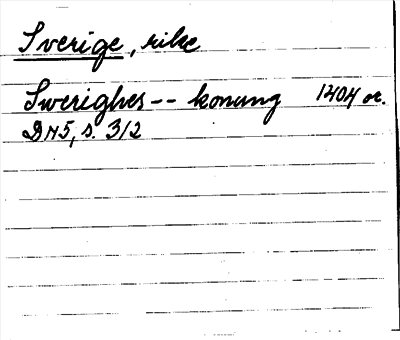 Sverige, rike
Swerighes -- konung 1404 or.
DN5, s. 312